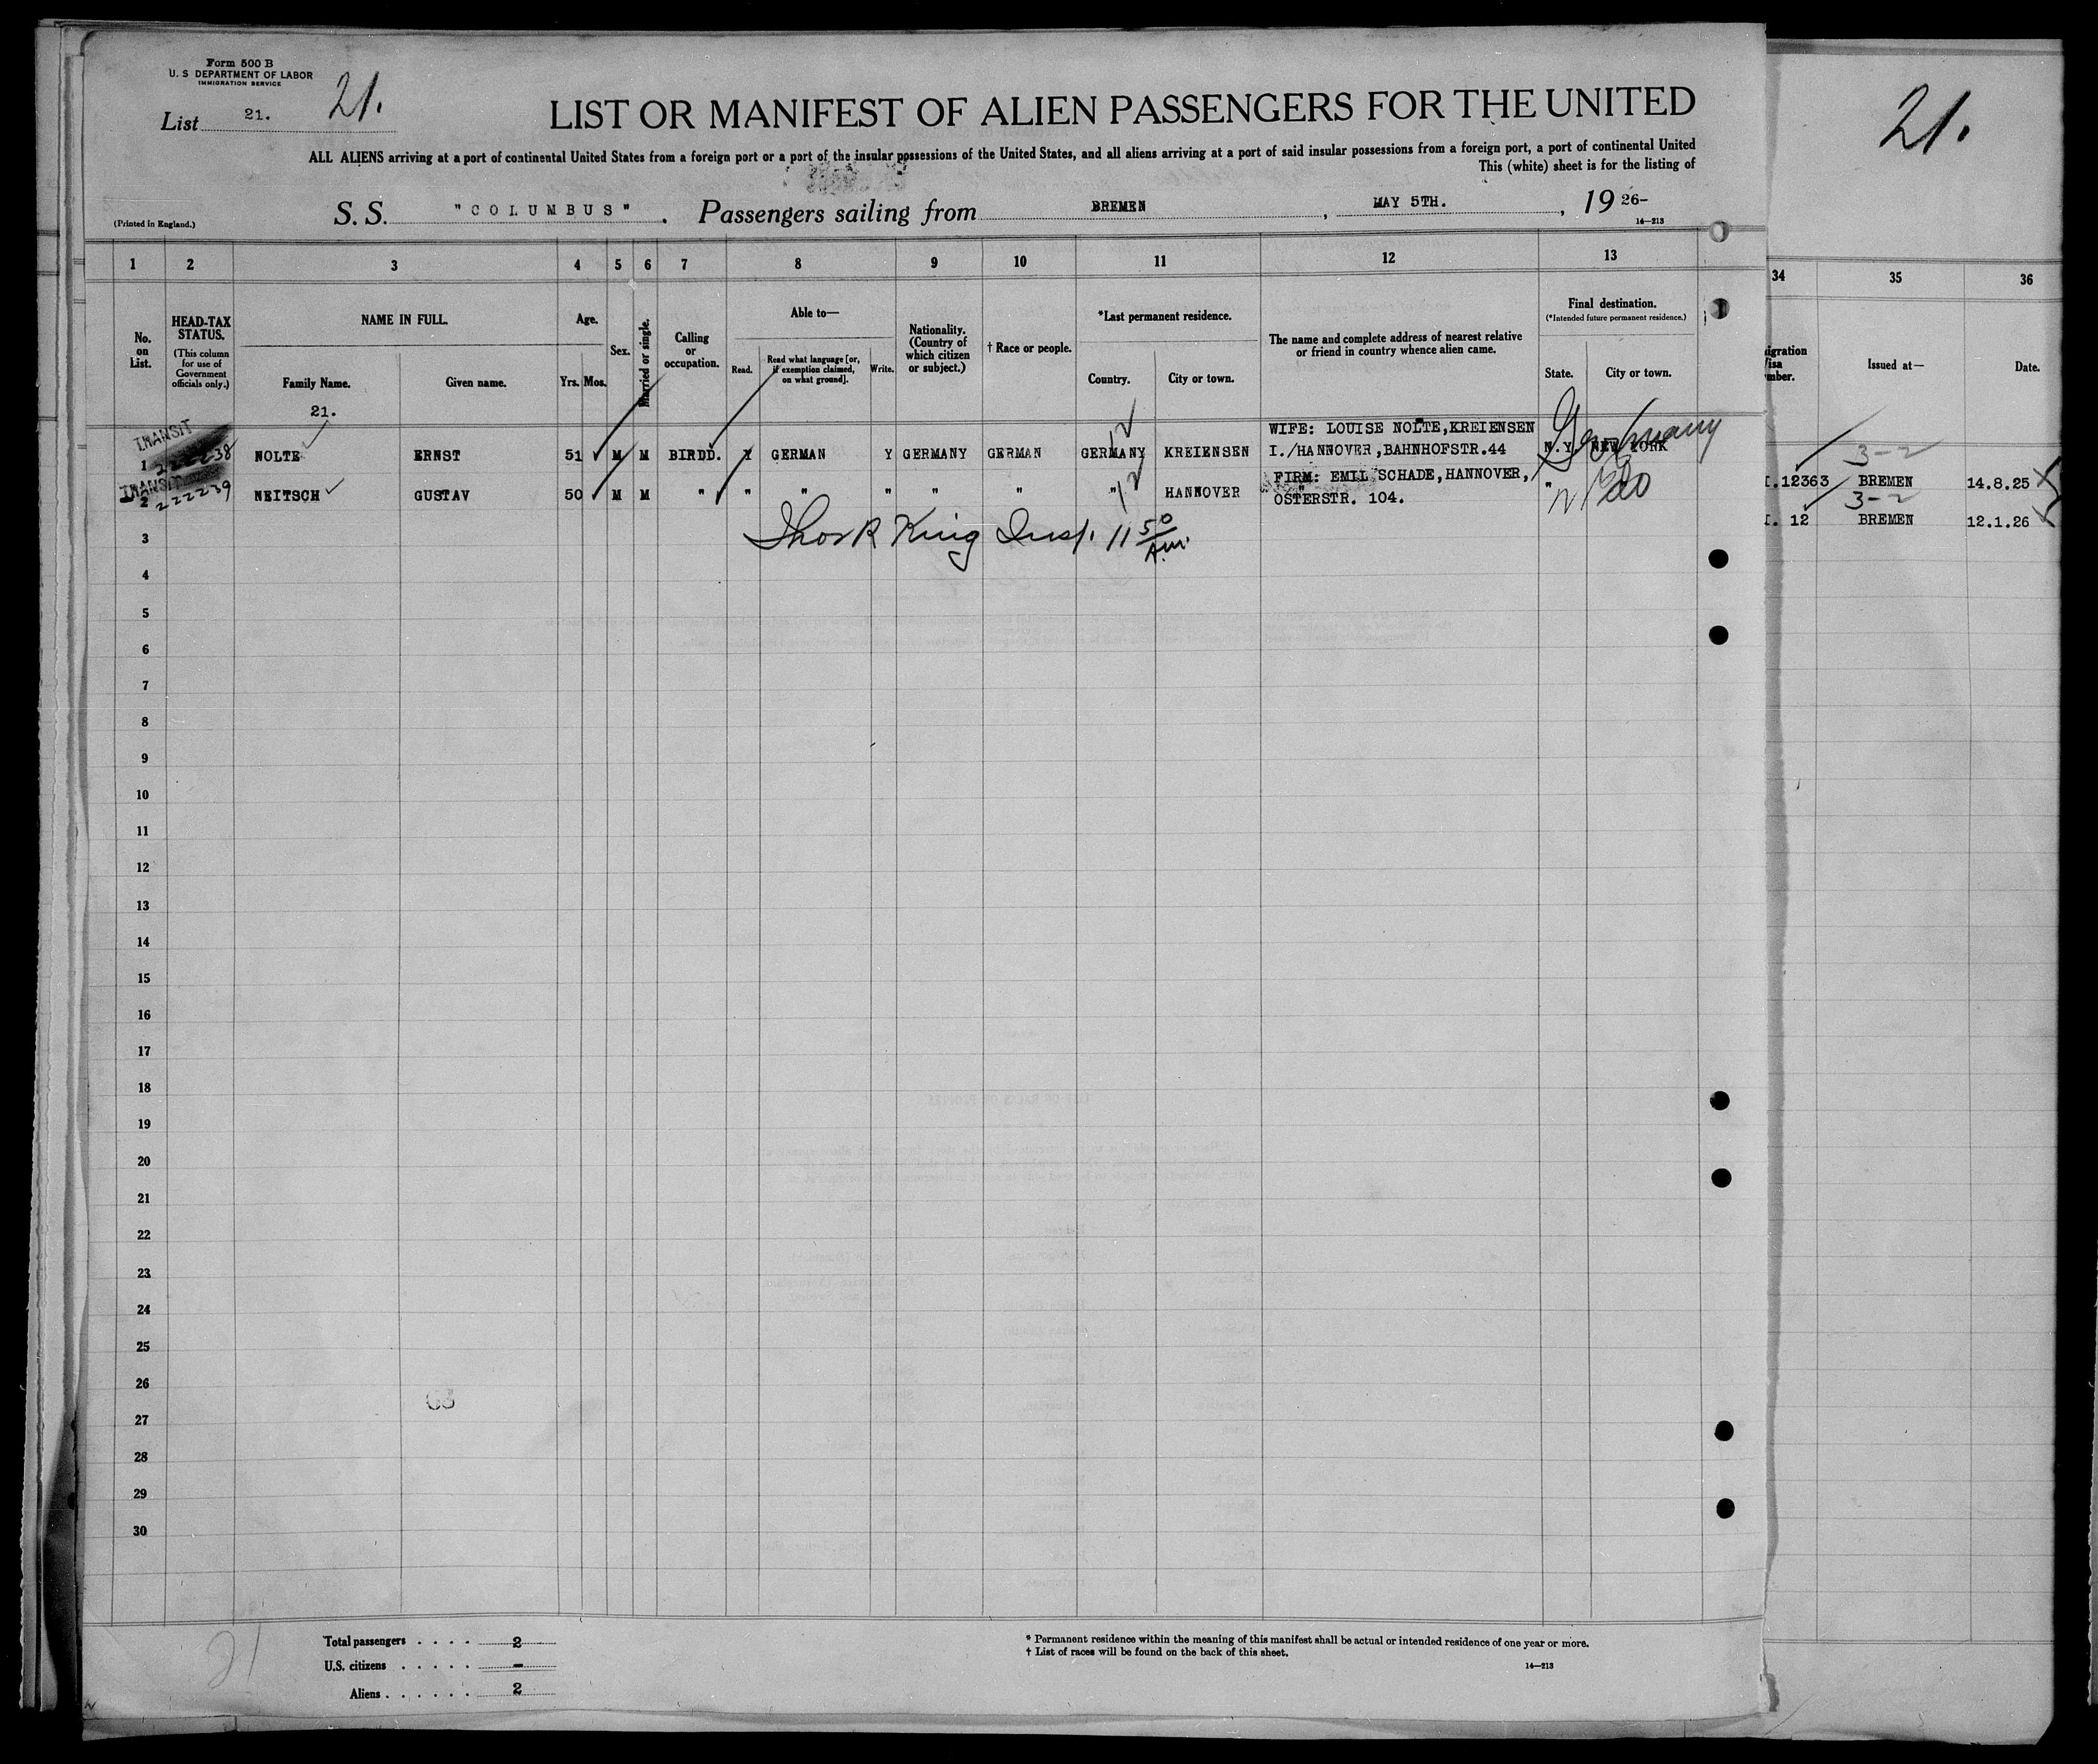 Form 500 B
U. S DEPARTMENT OF LABOR
IMMIGRATION SERVICE
List 21. 21.
LIST OR MANIFEST OF ALIEN PASSENGERS FOR THE UNITED
ALL ALIENS arriving at a port of continental United States from a foreign port or a port of the insular possessions of the United States, and all aliens arriving at a port of said insular possessions from a foreign port, a port of continental United
This (white) sheet is for the listing of
(Printed in England.)
S. S. "COLUMBUS". Passengers sailing from BREMEN, MAY 5TH., 19 26-
14—213
21.
1 2 3 4 5 6 7 8 9 10 11 12 13
34 35 36
No. on List.
HEAD-TAX STATUS.
(This column for use of Government officials only.)
NAME IN FULL.
Family Name. Given name.
Age.
Yrs. Mos.
Sex.
Married or single.
Calling or occupation.
Able to—
Read. Read what language [or, if exemption claimed, on what ground]. Write.
Nationality. (Country of which citizen or subject.)
† Race or people.
*Last permanent residence.
Country. City or town.
The name and complete address of nearest relative or friend in country whence alien came.
Final destination.
(*Intended future permanent residence.)
State. City or town.
Issued at— Date.
21.
TRANSIT
WIFE: LOUISE NOLTE,KREIENSEN
1 222238 NOLTE ERNST 51 M M BIRDD. Y GERMAN Y GERMANY GERMAN GERMANY KREIENSEN I./HANNOVER,BAHNHOFSTR.44 N.Y. NEW YORK
Germany
TRANSIT
FIRM: EMIL SCHADE,HANNOVER,
2 222239 NEITSCH GUSTAV 50 M M " " " " " " " HANNOVER OSTERSTR. 104. " "
3-2
I.12363 BREMEN 14.8.25
3-2
I. 12 BREMEN 12.1.26
King Insp. 11 50 A.m.
3
4
5
6
7
8
9
10
11
12
13
14
15
16
17
18
19
20
21
22
23
24
25
26
27
28
29
30
63
21
Total passengers . . . . 2
U.S. citizens . . . . . -
Aliens . . . . . . 2
* Permanent residence within the meaning of this manifest shall be actual or intended residence of one year or more.
† List of races will be found on the back of this sheet.
14—213